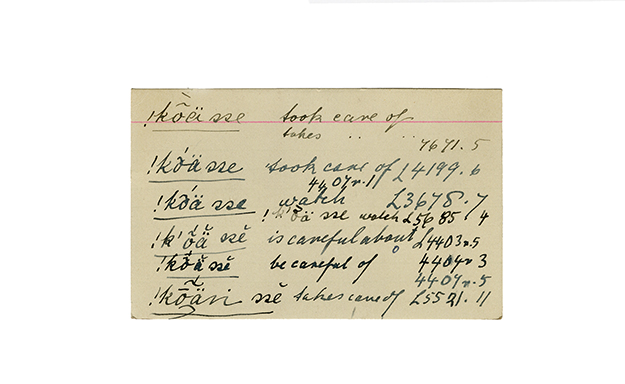 !kõä sse took care of
takes .. ..
7671.5
!kõä sse took care of £4199.6
4407v.11
!kõä sse watch £3678.7
!kõä sse watch £5685 4
!k'õä sĕ is careful about £4403v.5
!kõä sĕ be careful of 4404v3
4407v.5
!kõäri ssĕ takes care of £5521.11